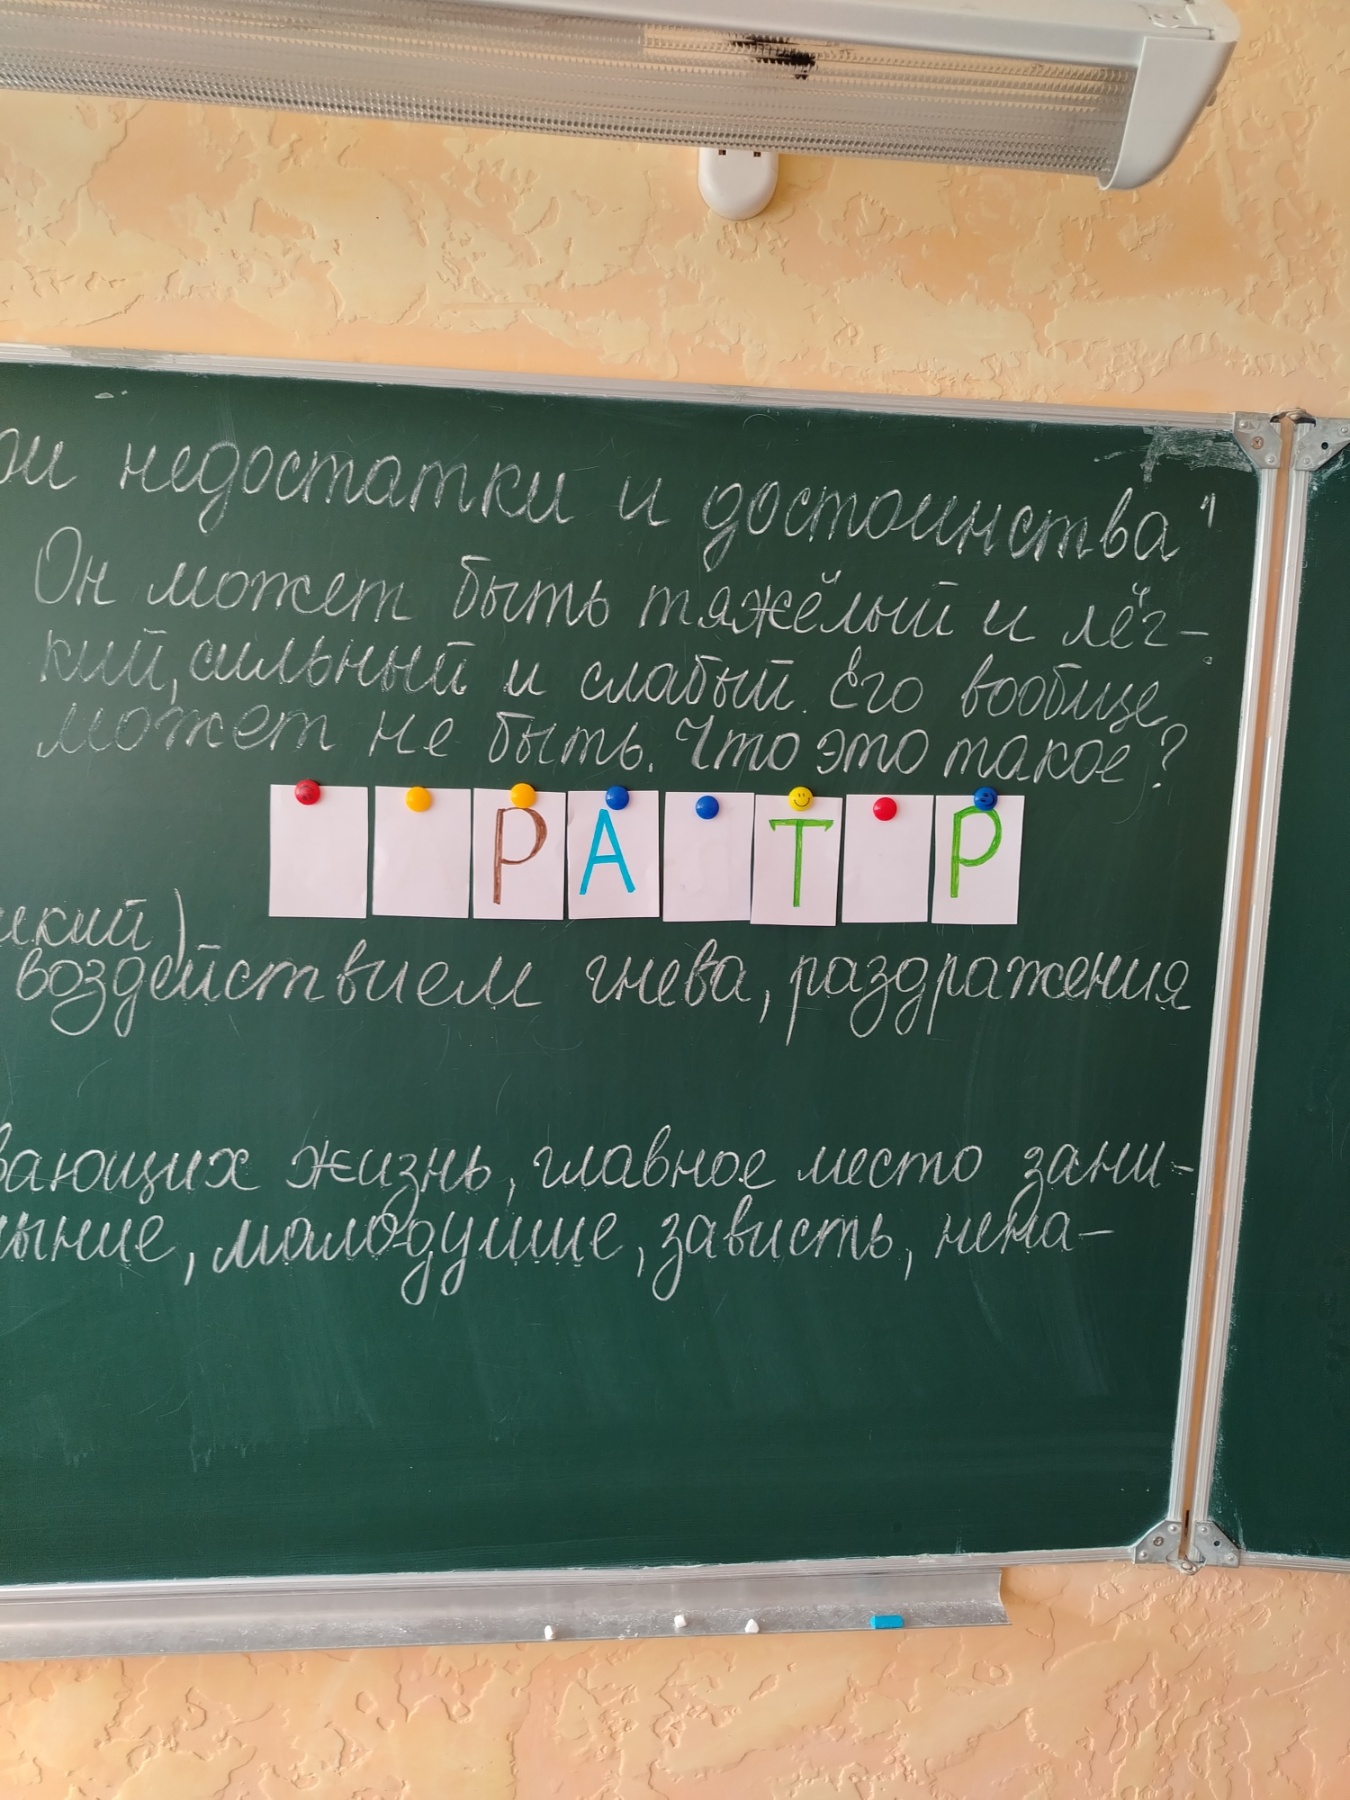 ои недостатки и достоинства"
Он может быть тяжёлый и лёг-
кий, сильный и слабый. Его вообще
может не быть. Что это такое?
Р А Т Р
ский)
воздействием гнева, раздражения
вающих жизнь, главное место зани-
ыние, малодушие, зависть, нена-